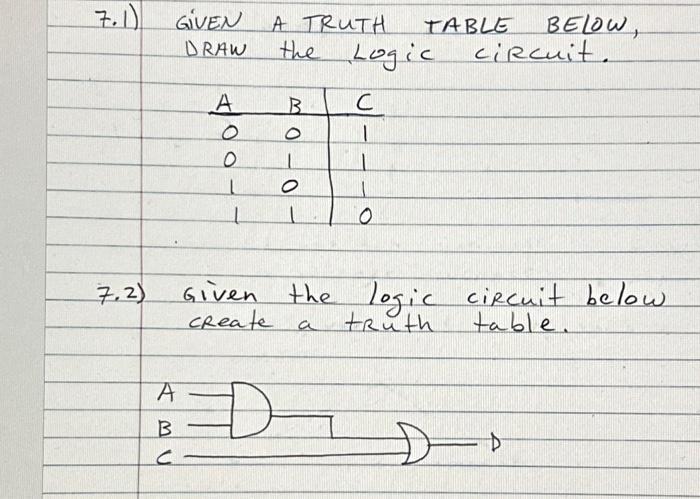 7.1) GiVEN A TRUTH TABLE BELOW,
DRAW the Logic ciRcuit.
A B C
0 0 1
0 1 1
1 0 1
1 1 0
7.2) Given the logic ciRcuit below
cReate a tRuth table.
A
B
C
D